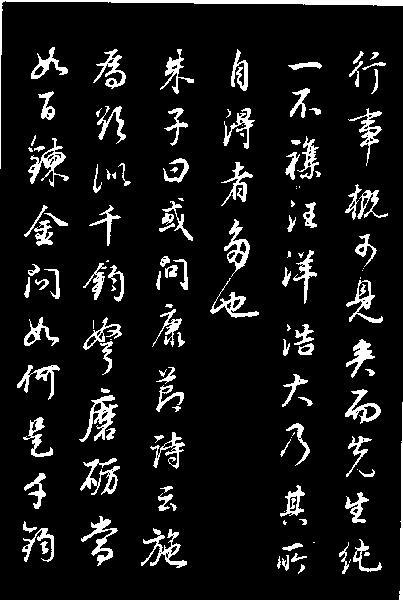 行事概可見矣而先生純
一不襍汪洋浩大乃其所
自得者多也
朱子曰或問康節詩云施
為欲似千鈞弩磨礪當
如百鍊金問如何是千鈞